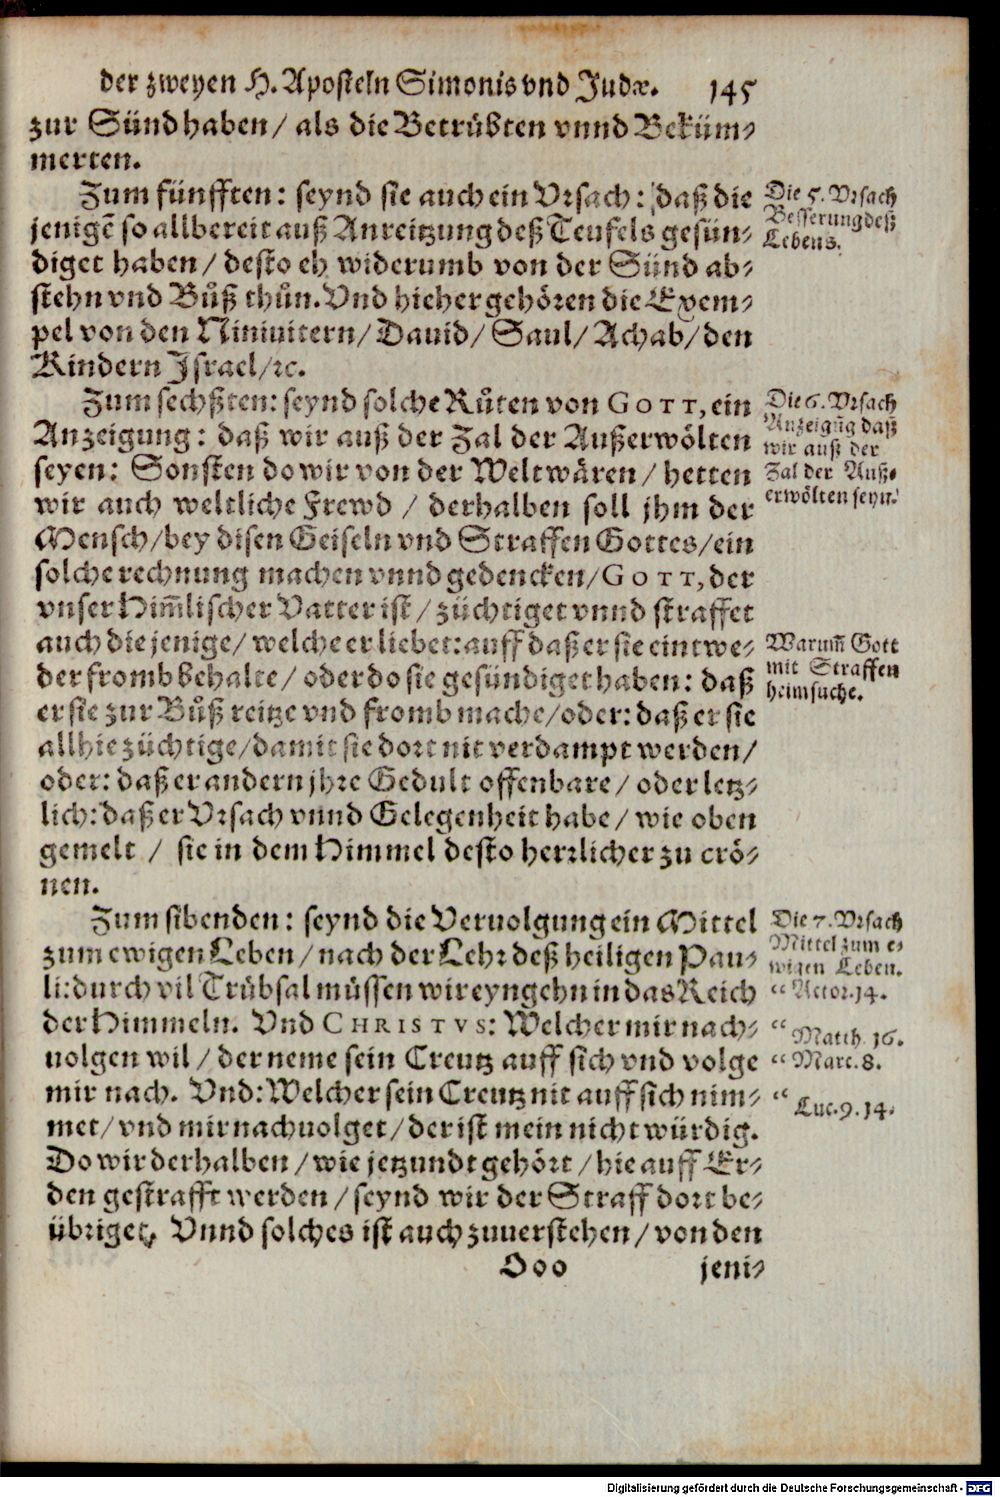 der zweyen H. Aposteln Simonis vnd Judæ. 145
zur Sünd haben / als die Betrůbten vnnd Beküm-
merten.
Zum fünfften: seynd sie auch ein Vrsach: daß die
jenigē so allbereit auß Anreitzung deß Teufels gesün-
diget haben / desto eh widerumb von der Sünd ab-
stehn vnd Bůß thůn. Vnd hieher gehören die Exem-
pel von den Niniuitern / Dauid / Saul / Achab / den
Kindern Israel / ꝛc.
Die 5. Vrsach
Besserung deß
Lebens.
Zum sechßten: seynd solche Růten von GOTT, ein
Anzeigung: daß wir auß der Zal der Außerwölten
seyen: Sonsten do wir von der Welt wären / hetten
wir auch weltliche Frewd / derhalben soll jhm der
Mensch / bey disen Geiseln vnd Straffen Gottes / ein
solche rechnung machen vnnd gedencken / GOTT, der
vnser Him̄lischer Vatter ist / züchtiget vnnd straffet
auch die jenige / welche er liebet: auff daß er sie eintwe-
der fromb behalte / oder do sie gesündiget haben: daß
er sie zur Bůß reitze vnd fromb mache / oder: daß er sie
allhie züchtige / damit sie dort nit verdampt werden /
oder: daß er andern jhre Gedult offenbare / oder letz-
lich: daß er Vrsach vnnd Gelegenheit habe / wie oben
gemelt / sie in dem Himmel desto herrlicher zu crö-
nen.
Die 6. Vrsach
Anzeigūg daß
wir auß der
Zal der Auß-
erwölten seyn.
Warum̄ Gott
mit Straffen
heimsuche.
Zum sibenden: seynd die Veruolgung ein Mittel
zum ewigen Leben / nach der Lehr deß heiligen Pau-
li: durch vil Trůbsal müssen wir eyngehn in das Reich
der Himmeln. Vnd CHRISTVS: Welcher mir nach-
uolgen wil / der neme sein Creutz auff sich vnd volge
mir nach. Vnd: Welcher sein Creutz nit auff sich nim-
met / vnd mir nachuolget / der ist mein nicht würdig.
Do wir derhalben / wie jetzundt gehört / hie auff Er-
den gestrafft werden / seynd wir der Straff dort be-
übriget. Vnnd solches ist auch zuuerstehen / von den
Die 7. Vrsach
Mittel zum e-
wigen Leben.
“ Actor. 14.
“ Matth. 16.
“ Marc. 8.
“ Luc. 9. 14.
Ooo jeni-
Digitalisierung gefördert durch die Deutsche Forschungsgemeinschaft - DFG